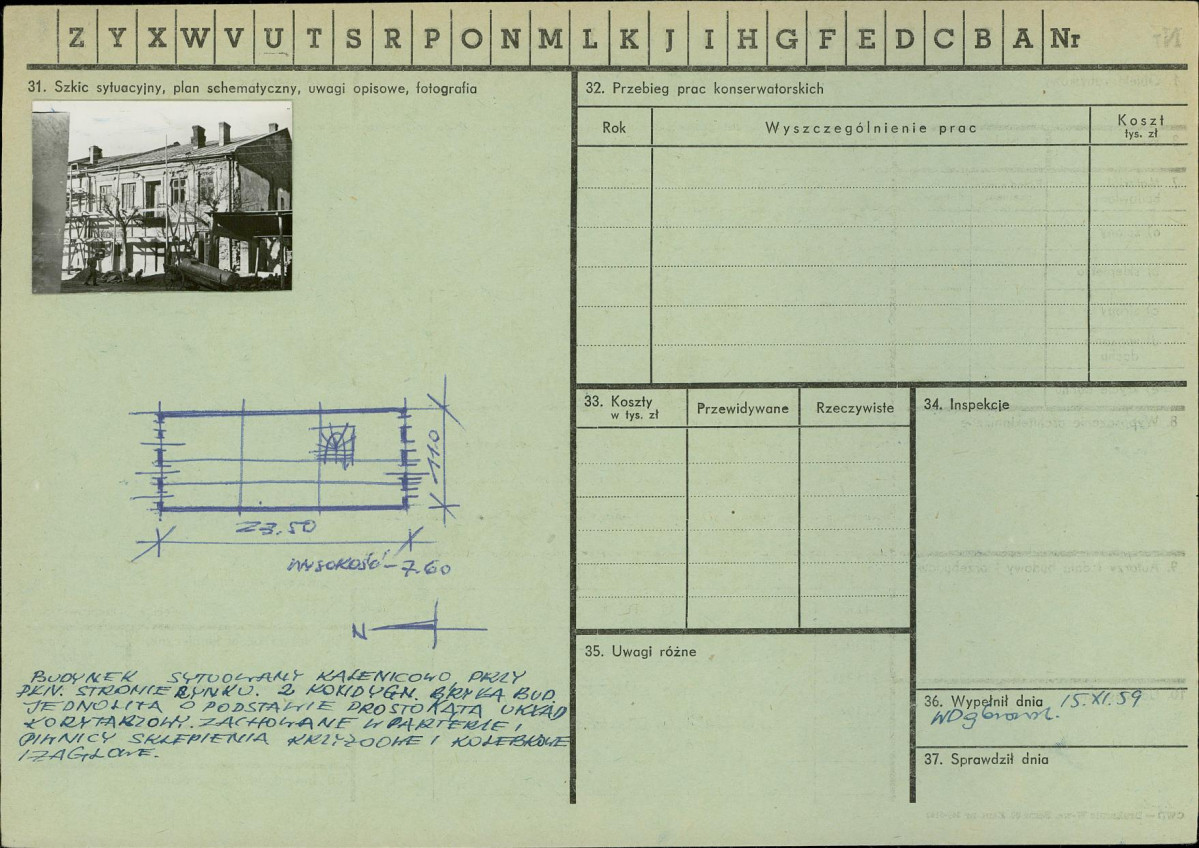 Z Y X W V U T S R P O N M L K J I H G F E D C B A Nr
31. Szkic sytuacyjny, plan schematyczny, uwagi opisowe, fotografia
11.0
23.50
WYSOKOŚĆ – 7.60
N
BUDYNEK SYTUOWANY KALENICOWO, PRZY
PŁN. STRONIE RYNKU. 2 KONDYGN. BRYŁA BUD.
JEDNOLITA O PODSTAWIE PROSTOKĄTA UKŁAD
KORYTARZOWY. ZACHOWANE W PARTERZE I
PIWNICY SKLEPIENIA KRZYŻOWE I KOLEBKOWE
I ŻAGLOWE.
32. Przebieg prac konserwatorskich
Rok Wyszczególnienie prac Koszt
tys. zł
33. Koszty
w tys. zł
Przewidywane Rzeczywiste
34. Inspekcje
35. Uwagi różne
36. Wypełnił dnia 15.XI.59
37. Sprawdził dnia